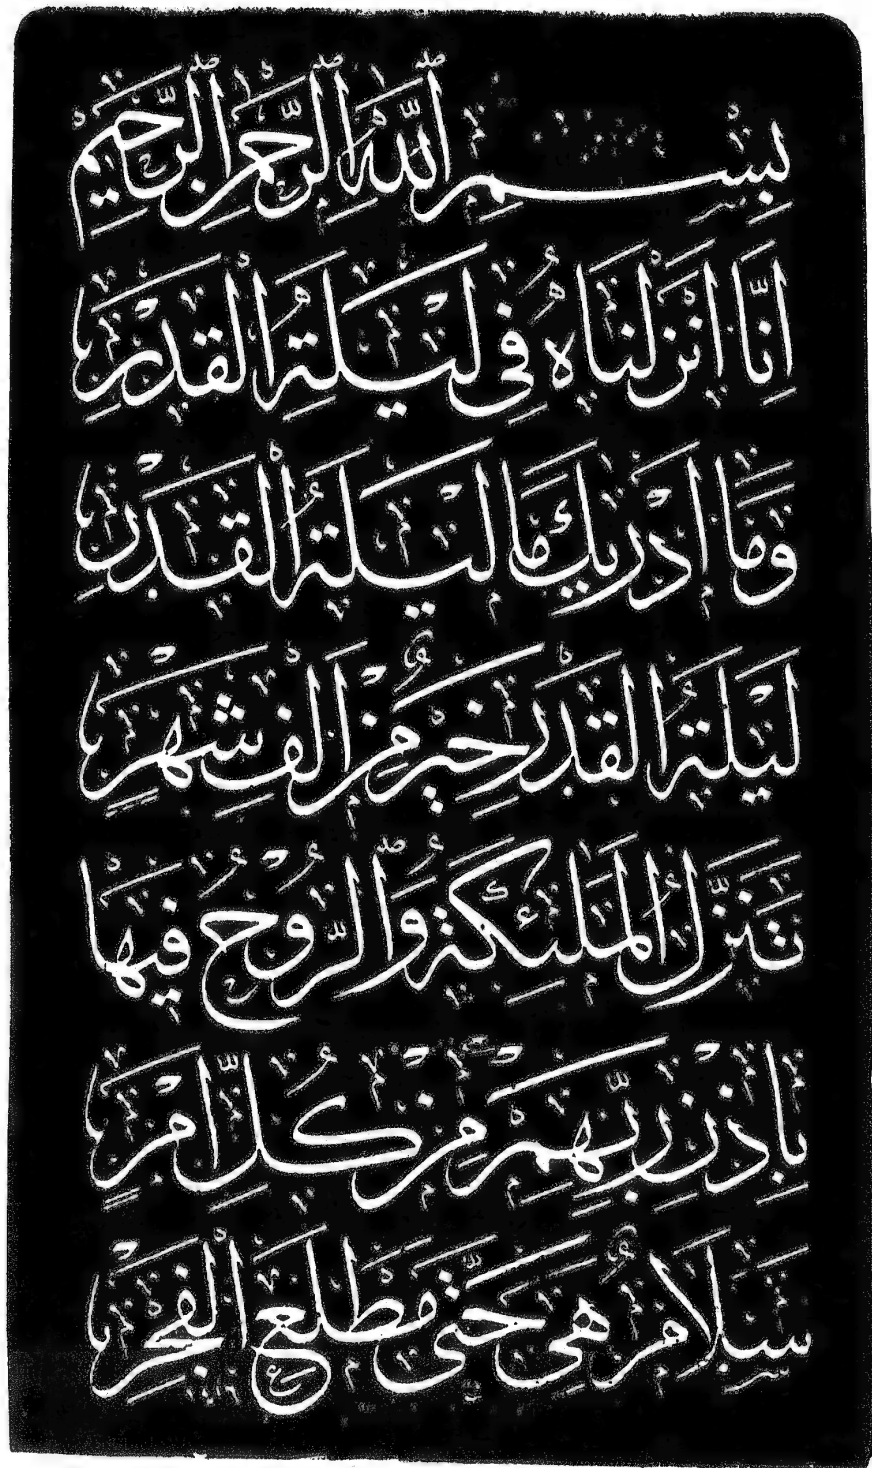 بِسْمِ اللَّهِ الرَّحْمَٰنِ الرَّحِيمِ
اِنَّا اَنْزَلْنَاهُ فِى لَيْلَةِ الْقَدْرِ
وَمَا اَدْرٰيكَ مَا لَيْلَةُ الْقَدْرِ
لَيْلَةُ الْقَدْرِ خَيْرٌ مِنْ اَلْفِ شَهْرٍ
تَنَزَّلُ الْمَلٰئِكَةُ وَالرُّوحُ فِيهَا
بِاِذْنِ رَبِّهِمْ مِنْ كُلِّ اَمْرٍ
سَلَامٌ هِىَ حَتَّى مَطْلَعِ الْفَجْرِ